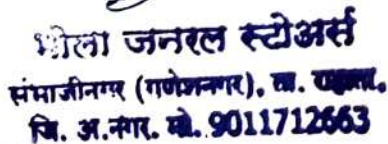 भोला जनरल स्टोअर्स
संभाजीनगर (गणेशनगर), ता. राहाता,
जि. अ.नगर. मो. 9011712663